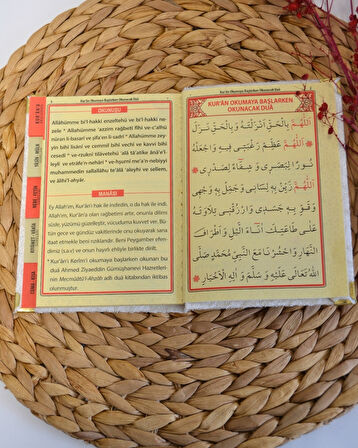 Kur'ân Okumaya Başlarken Okunacak Duâ
OKUNUŞU
Allâhümme bi'l hakkı enzeltehü ve bi'l-hakkı ne-
zele * Allahümme 'azzim rağbetî fîhi ve-c'alhü
nûran li-basarî ve şifâ'en li-sadrî * Allahümme zey-
yin bihî lisânî ve cemmil bihî vechî ve kavvi bihî
cesedî * ve-rzuknî tilâvetehû 'alâ tâ'atike ânâ'e'l-
leyli ve etrâfe'n-nehâri * ve-hşurnî me'a'n-nebiyyi
muhammedin sallallâhu te'âlâ aleyhi ve sellem,
ve âlihi'l-ahyâr.
MANÂSI
Ey Allah'ım, Kur'ân'ı hak ile indirdin, o da hak ile indi.
Allah'ım, Kur'ân'a olan rağbetimi artır, onunla dilimi
süsle, yüzümü güzelleştir, vücuduma kuvvet ver. Bü-
tün gece ve gündüz vakitlerinde onu okuyarak sana
itaat etmekle beni rızıklandır. Beni Peygamber efendi-
miz (s.a.v) ve onun hayırlı ehliyle birlikte dirilt.
*Kur'ân-ı Kerim'i okumaya başlarken okunan bu
duâ Ahmed Ziyaeddin Gümüşhanevi Hazretleri-
nin Mecmûâtü'l-Ahzâb adlı duâ kitabından iktibas
olunmuştur.
Kur'ân Okumaya Başlarken Okunacak Duâ
KUR'ÂN OKUMAYA BAŞLARKEN
OKUNACAK DUÂ
اَللّٰهُمَّ بِالْحَقِّ اَنْزَلْتَهُ وَبِالْحَقِّ نَزَلَ
اَللّٰهُمَّ عَظِّمْ رَغْبَتِى فِيهِ وَاجْعَلْهُ
نُورًا لِبَصَرِى وَشِفَاءً لِصَدْرِى
اَللّٰهُمَّ زَيِّنْ بِهِ لِسَانِى وَجَمِّلْ بِهِ وَجْهِى
وَقَوِّ بِهِ جَسَدِى وَارْزُقْنِى تِلَاوَتَهُ
عَلَى طَاعَتِكَ اٰنَاءَ الَّيْلِ وَاَطْرَافَ
النَّهَارِ وَاحْشُرْنَا مَعَ النَّبِىِّ مُحَمَّدٍ صَلَّى
اللّٰهُ تَعَالَى عَلَيْهِ وَسَلَّمَ وَاٰلِهِ الْاَخْيَارِ